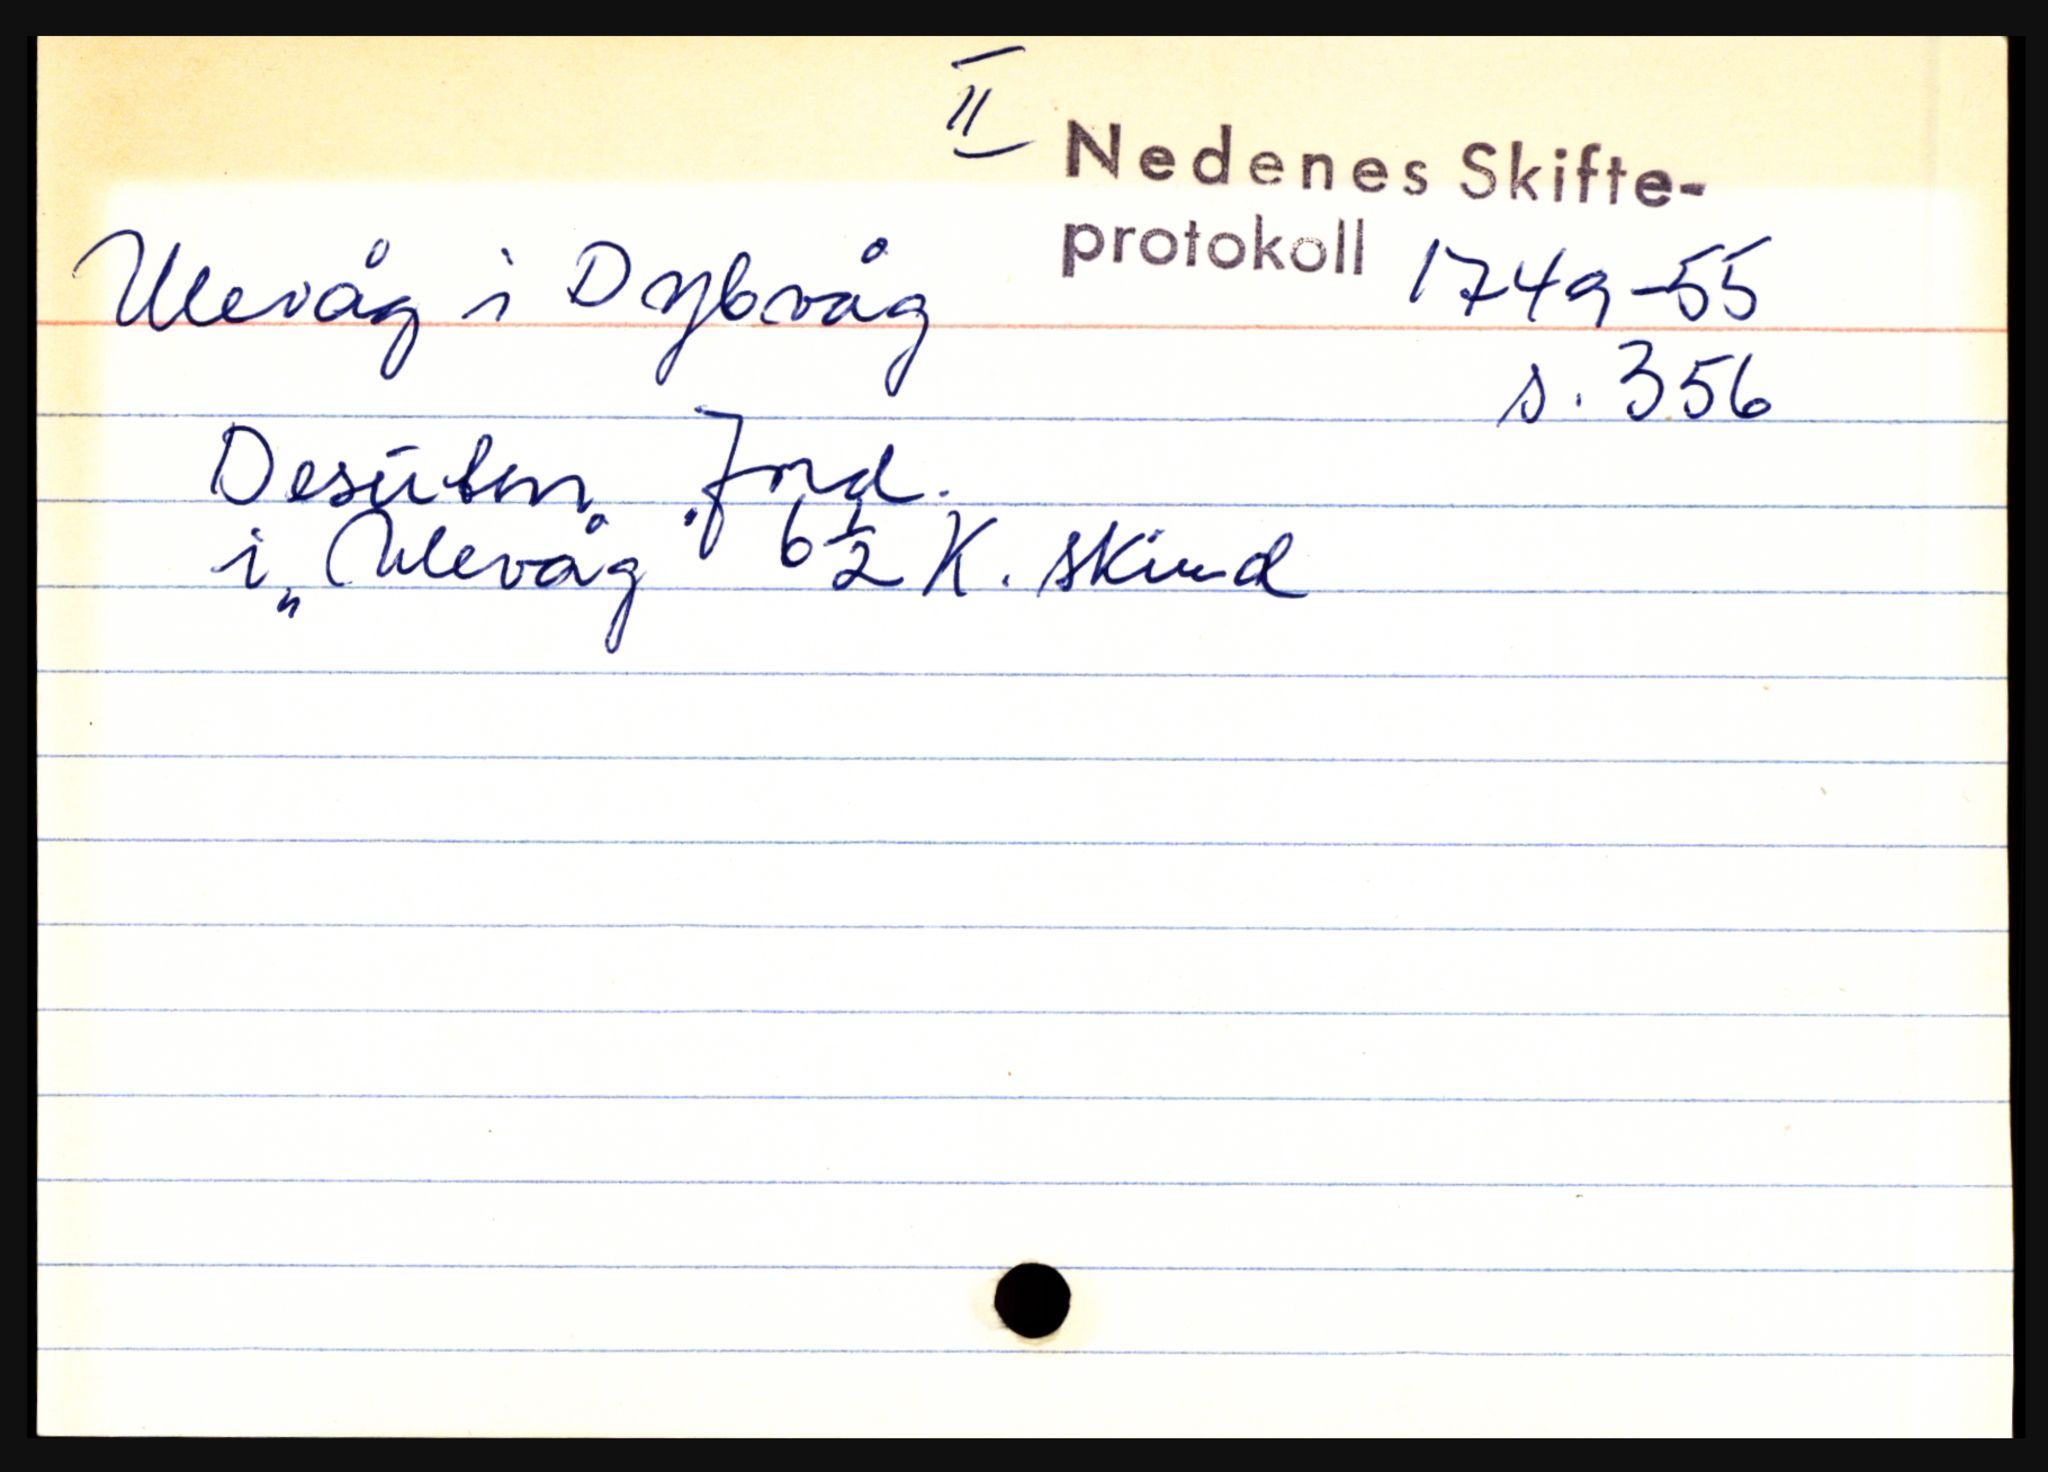 II
Nedenes Skifte-
protokoll 1749-55
Ulevåg i Dybvåg
s. 356
Desuten Jord.
i „Ulevåg" 6½ K. skind